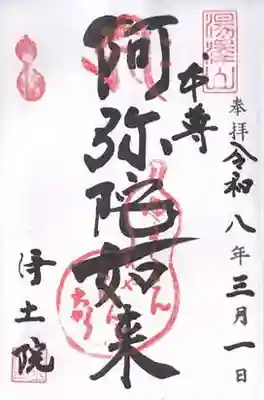 奉拝
令和八年三月一日
湯澤山
本尊
阿弥陀如来
浄土院